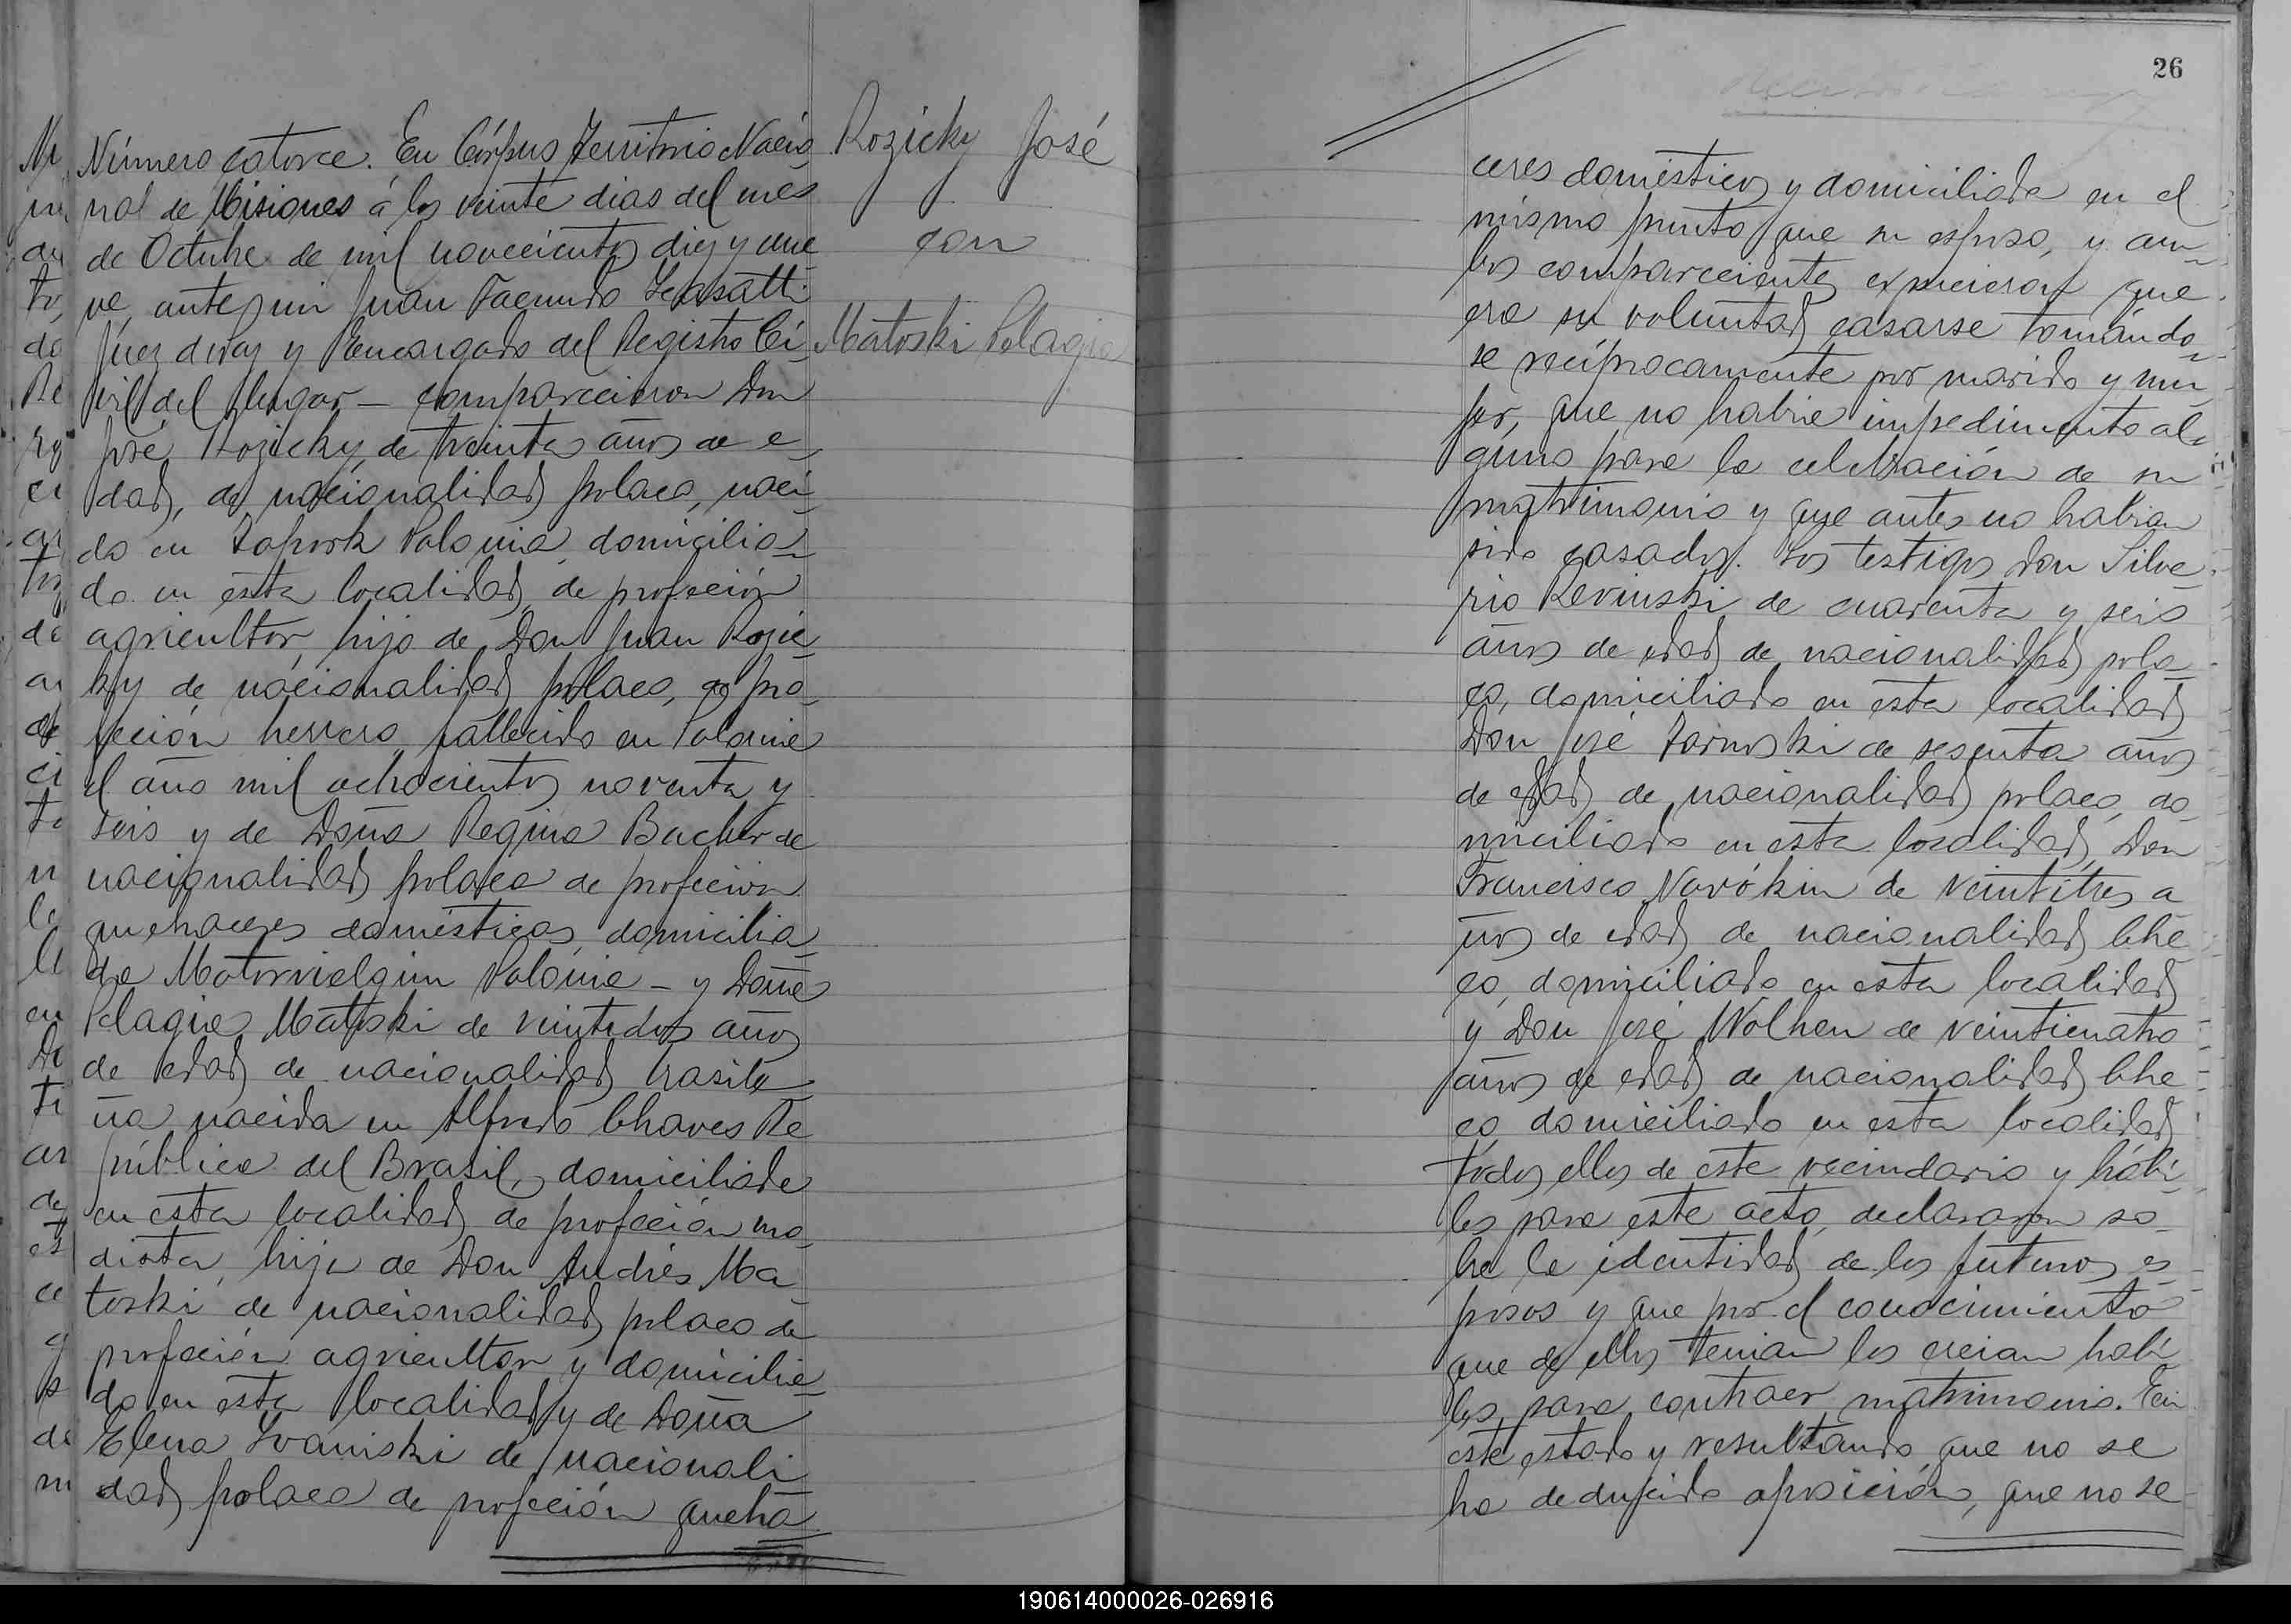 Número catorce. En Córpus Territorio Nacio
nal de Misiones á los veinte dias del mes
de Octubre de mil novecientos diez y nue
ve, ante mi Juan Facundo
Juez de Paz y Encargado del Registro Ci-
vil del lugar - comparecieron Don
José Rozicky de treinta años de e-
dad, de nacionalidad polaca, naci-
do en Polonia domicilia-
do en esta localidad, de profeción
agricultor, hijo de Don Juan Rozic-
ky de nacionalidad polaco, de pro-
feción herrero fallecido en Polonia
el año mil ochocientos noventa y
seis y de Doña Regina Bucher de
nacionalidad polaca de profeción
quehaceres domésticos, domicilia-
da Polonia - y Doña
Pelagia Matoski de veintidos años
de edad de nacionalidad brasile-
ña nacida en Alfredo Chaves Re
pública del Brasil, domiciliada
en esta localidad, de profeción mo-
dista, hija de Don Andrés Ma-
toski de nacionalidad polaco de
profeción agricultor y domicilia-
do en esta localidad y de Doña
Elena Ivaniski de nacionali
dad polaca de profeción queha
Rozicky José
con
Matoski Pelagia
26
ceres domésticos y domiciliada en el
mismo punto que su esposo, y am-
bos comparecientes expucieron que
era su voluntad casarse tomándo-
se recíprocamente por marido y mu-
jer, que no habia impedimento al-
guno para la celebración de su
matrimonio y que antes no habian
sido casados. Los testigos Don Silve-
rio Revinski de cuarenta y seis
años de edad de nacionalidad pola-
co, domiciliado en esta localidad
Don José Zarnoski de sesenta años
de edad, de nacionalidad polaco, do-
miciliado en esta localidad, Don
Francisco Novókin de veintitres a
ños de edad, de nacionalidad Che
co, domiciliado en esta localidad
y Don José Wolhen de veinticuatro
años de edad, de nacionalidad Che
co, domiciliado en esta localidad
todos ellos de este vecindario y hábi-
les para este acto, declararon so-
bre la identidad de los futuros es-
posos y que por el conocimiento
que de ellos tenian los creian habi
les para contraer matrimonio. En
este estado y resultando que no se
ha deducido oposición, que no se
190614000026-026916